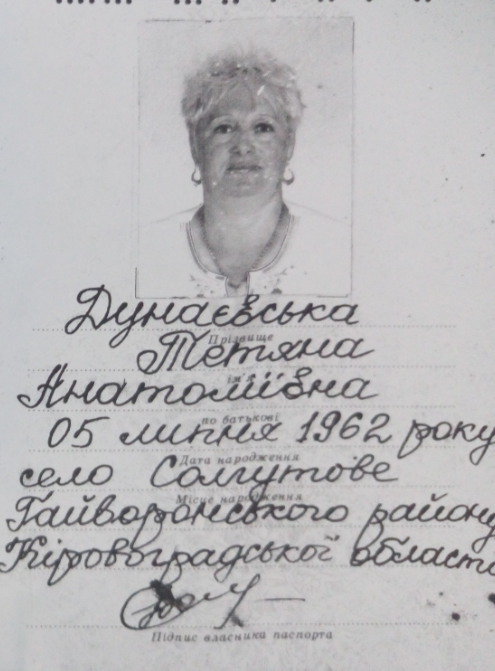 Дунаєвська
Прізвище
Тетяна
ім'я
Анатоліївна
по батькові
05 липня 1962 року
Дата народження
село Солгутове
Місце народження
Гайворонського району
Кіровоградської області
Підпис власника паспорта